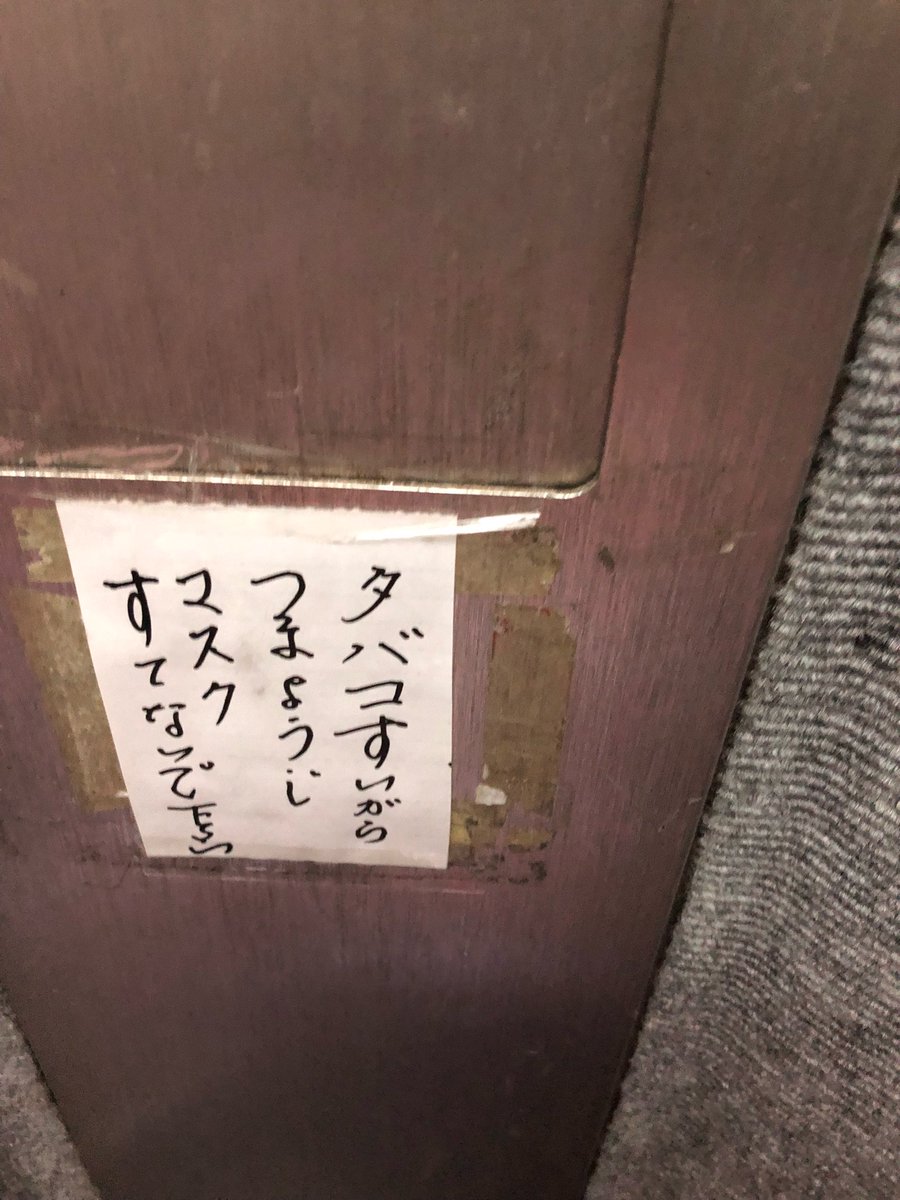 タバコすいがら
つまようじ
マスク
すてないで下さい